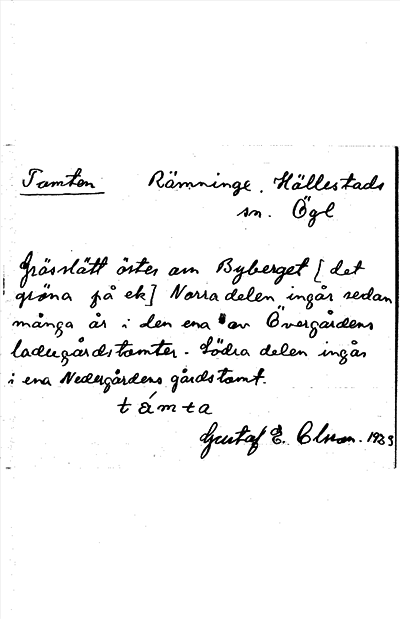 Tomten Rämninge, Hällestads
sn. Ögl
Grässlätt öster om Byberget [det
gröna på ek] Norra delen ingår sedan
många år i den ena av Övergårdens
ladugårdstomter. Södra delen ingår
i ena Nedergårdens gårdstomt.
támta
Gustaf E. Olson. 1933